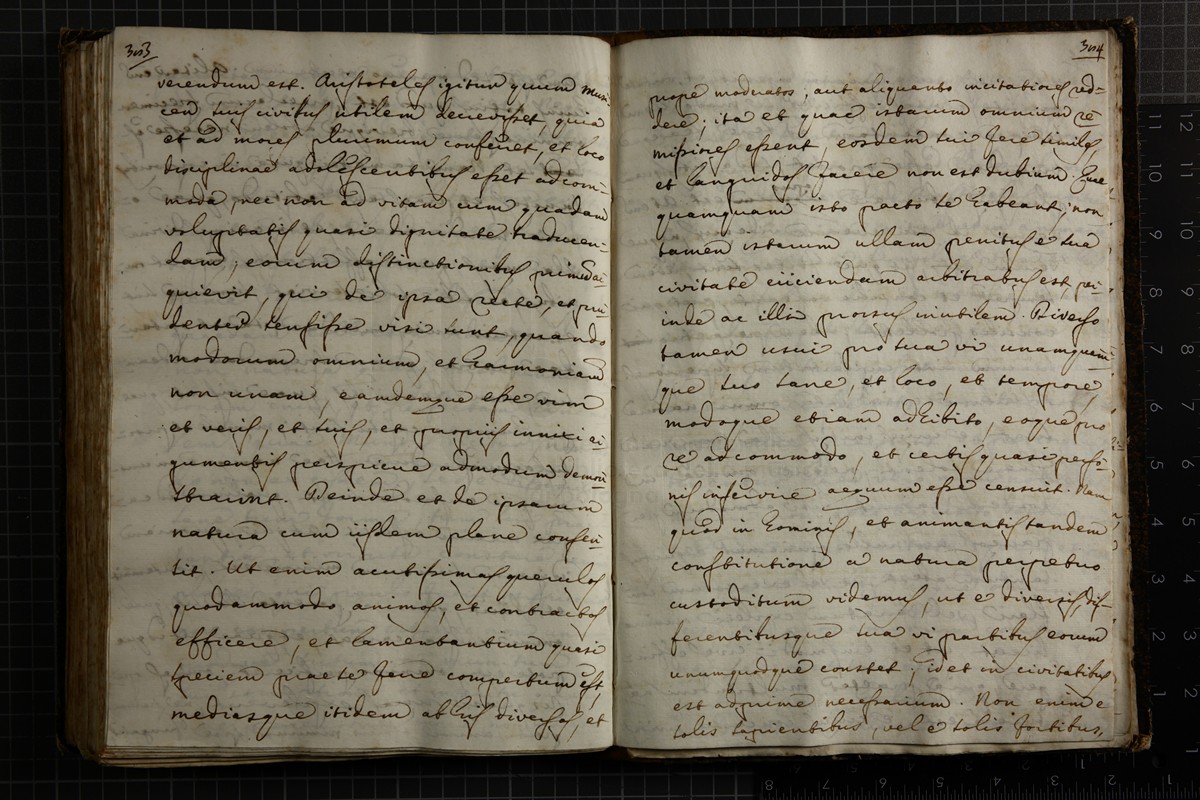 303
verendum est. Aristoteles igitur quum musi-
cen suis civibus utilem decrevisset, quia
et ad mores plurimum conferret, et loco
disciplinae adolescentibus esset adcom-
moda, nec non ad vitam cum quadam
voluptatis quasi dignitate traducen-
dam; eorum distinctionibus primum ac-
quievit, qui de ipsa recte, et pru-
denter sensisse visi sunt, quando
modorum omnium, et harmoniarum
non unam, eamdemque esse vim
et veris, et suis, et propriis innixi ar-
gumentis perspicue admodum demon-
strarint. Deinde et de ipsarum
natura cum iisdem plane consen-
tit. Ut enim acutissimas querulos
quodammodo animos, et contractos
efficere, et lamentantium quasi
speciem prae se ferre compertum est,
mediasque itidem ab his diversos, et
304
prope moderatos, aut aliquanto incitatiores red-
dere; ita et quae istarum omnium re-
missiores essent, eosdem sui fere similes
et languidos facere non est dubium. Quae
quamquam isto pacto se habeant, non
tamen istarum ullam penitus e sua
civitate eiiciendam arbitratus est, per-
inde ac illi prorsus inutilem. Diverso
tamen usui pro sua vi unamquam-
que suo sane, et loco, et tempore,
modoque etiam adhibito, eoque pro
re adcommodo, et certis quasi perso-
nis inservire aequum esse censuit. Nam
quod in hominis, et animantis tandem
constitutione a natura perpetuo
custoditum videmus, ut e diversis dif-
ferentibusque sua vi partibus eorum
unumquodque constet; id et in civitatibus
est adprime necessarium. Non enim e
solis sapientibus, vel e solis fortibus,